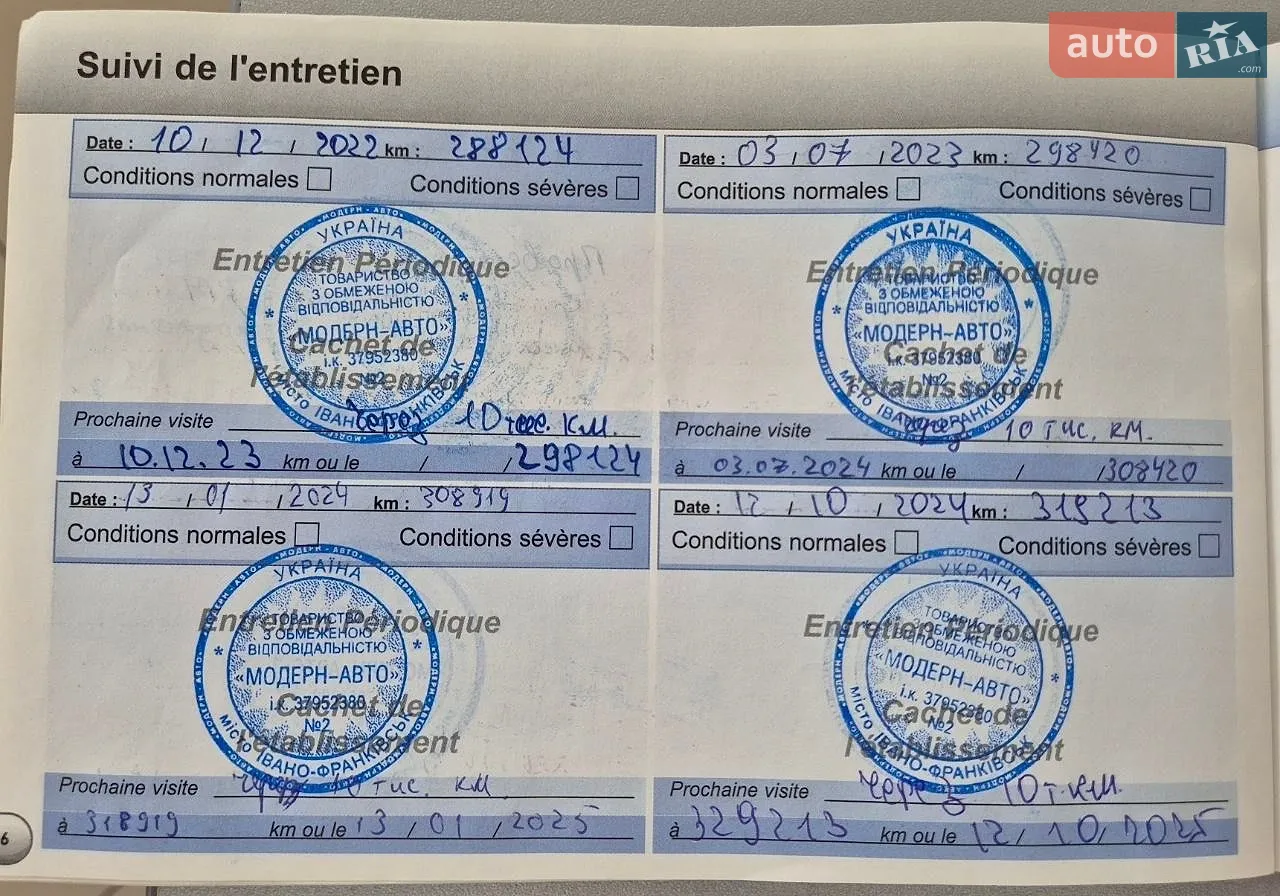 auto RIA .com
Suivi de l'entretien
Date : 10 / 12 / 2022 km : 288124
Conditions normales Conditions sévères
МОДЕРН-АВТО
УКРАЇНА
Entretien Périodique
ТОВАРИСТВО
З ОБМЕЖЕНОЮ
ВІДПОВІДАЛЬНІСТЮ
«МОДЕРН-АВТО»
Cachet de
і.к. 37952380
№2
l'établissement
Prochaine visite через 10 тис. км.
à 10.12.23 km ou le / / 298124
Date : 03 / 07 / 2023 km : 298420
Conditions normales Conditions sévères
УКРАЇНА
Entretien Périodique
ТОВАРИСТВО
З ОБМЕЖЕНОЮ
ВІДПОВІДАЛЬНІСТЮ
«МОДЕРН-АВТО»
Cachet de
і.к. 37952380
№2
l'établissement
Prochaine visite через 10 тис. км.
à 03.07.2024 km ou le / / 308420
Date : 13 / 01 / 2024 km : 308919
Conditions normales Conditions sévères
МОДЕРН-АВТО
УКРАЇНА
Entretien Périodique
ТОВАРИСТВО
З ОБМЕЖЕНОЮ
ВІДПОВІДАЛЬНІСТЮ
«МОДЕРН-АВТО»
Cachet de
і.к. 37952380
№2
l'établissement
МІСТО ІВАНО-ФРАНКІВСЬК
Prochaine visite через 10 тис. км.
à 318919 km ou le 13 / 01 / 2025
Date : 12 / 10 / 2024 km : 319213
Conditions normales Conditions sévères
МОДЕРН-АВТО
УКРАЇНА
Entretien Périodique
ТОВАРИСТВО
З ОБМЕЖЕНОЮ
ВІДПОВІДАЛЬНІСТЮ
«МОДЕРН-АВТО»
Cachet de
і.к. 37952380
№2
l'établissement
МІСТО ІВАНО-ФРАНКІВСЬК
Prochaine visite через 10 т.км.
à 329213 km ou le 12 / 10 / 2025
6